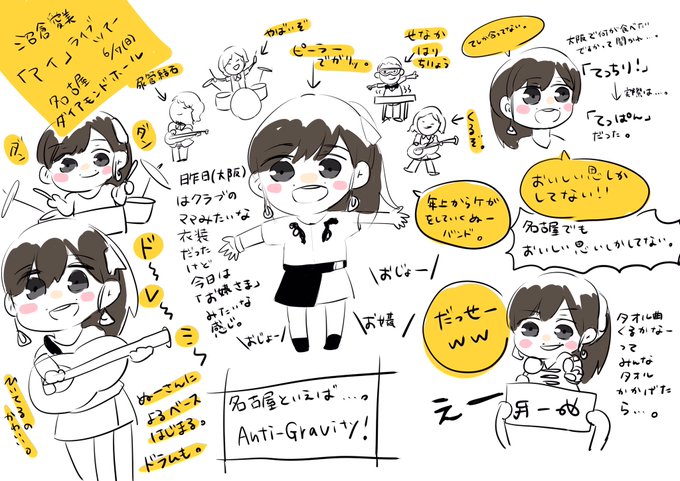 沼倉愛美
「アイ」ライブツアー
6/9(日)
名古屋
ダイアモンドホール
尿管結石
やばいぞ
ピーラーで
ガリッ。
せなか
はり
ちりょう
くるぞ。
てしか合ってない。
大阪で何が食べたい
ですかって聞かれ…。
「てっちり!」
→実際は…。
「てっぱん」
だった。
おいしい思いしか
してない!!
名古屋でも
おいしい思いしかしてない。
ダン
ダン
昨日(大阪)
はクラブの
ママみたいな
衣装
だった
けど
今日は
「お嬢さま」
みたいな
感じ。
年上からケガ
をしていくぬー
バンド。
おじょー
おじょー
お嬢
だっせー
ww
タオル曲
くるかなー
って
みんな
タオル
かかげてた
ら…。
えー
ド〜レ〜ミ〜
ひいてるの
かわい…。
ぬーさんに
よるベース
はじまる。
ドラムも。
名古屋といえば…。
Anti-Gravity!